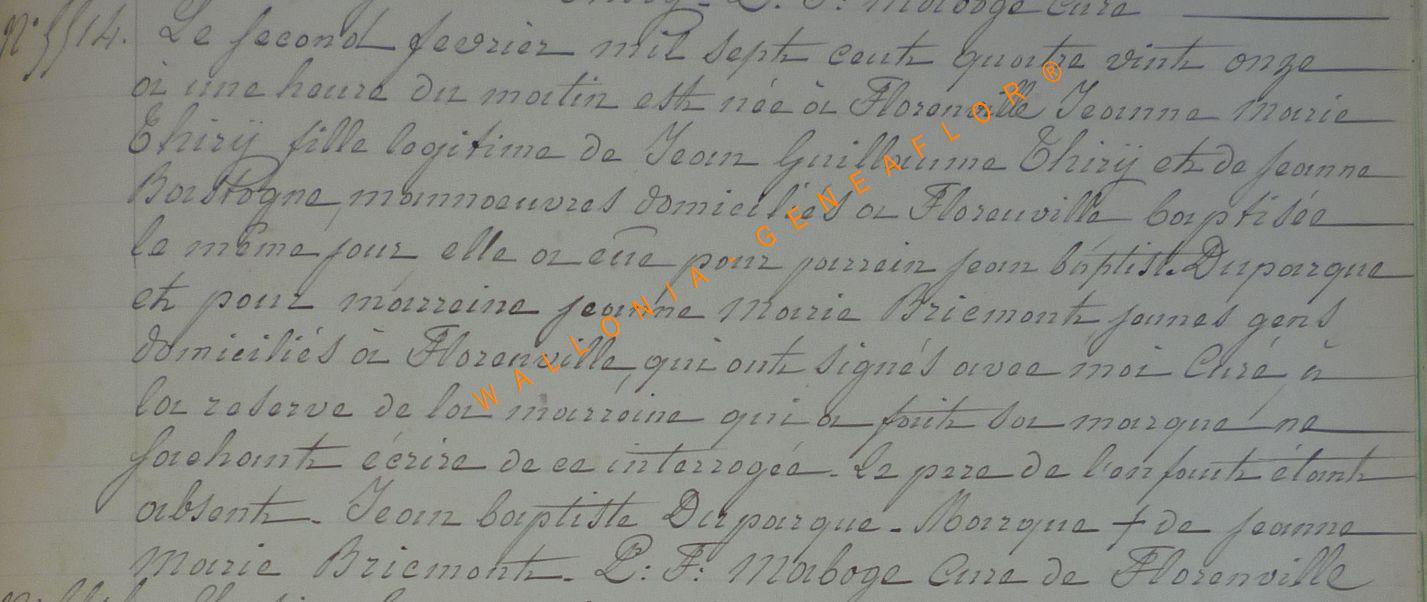 P. F. Maboge Curé
N° 5514. Le second fevrier mil sept cent quatre vint onze
à une heure du matin est née à Florenville Jeanne Marie
Thirÿ fille legitime de Jean Guillaume Thirÿ et de jeanne
Bastogne, mannoeuvres domiciliés a Florenville baptisée
le même jour elle a eue pour parrein jean baptiste Duparque
et pour marreine jeanne Marie Briemont jeunes gens
domiciliés à Florenville, qui ont signés avec moi Curé, à
la reserve de la marreine qui a fait sa marque ne
sachant écrire de ce interrogée. Le pere de l'enfant étant
absent. Jean baptiste Duparque. Marque + de jeanne
Marie Briemont. P: F: Maboge Cure de Florenville
WALLONIA - GENEAFLOR ®